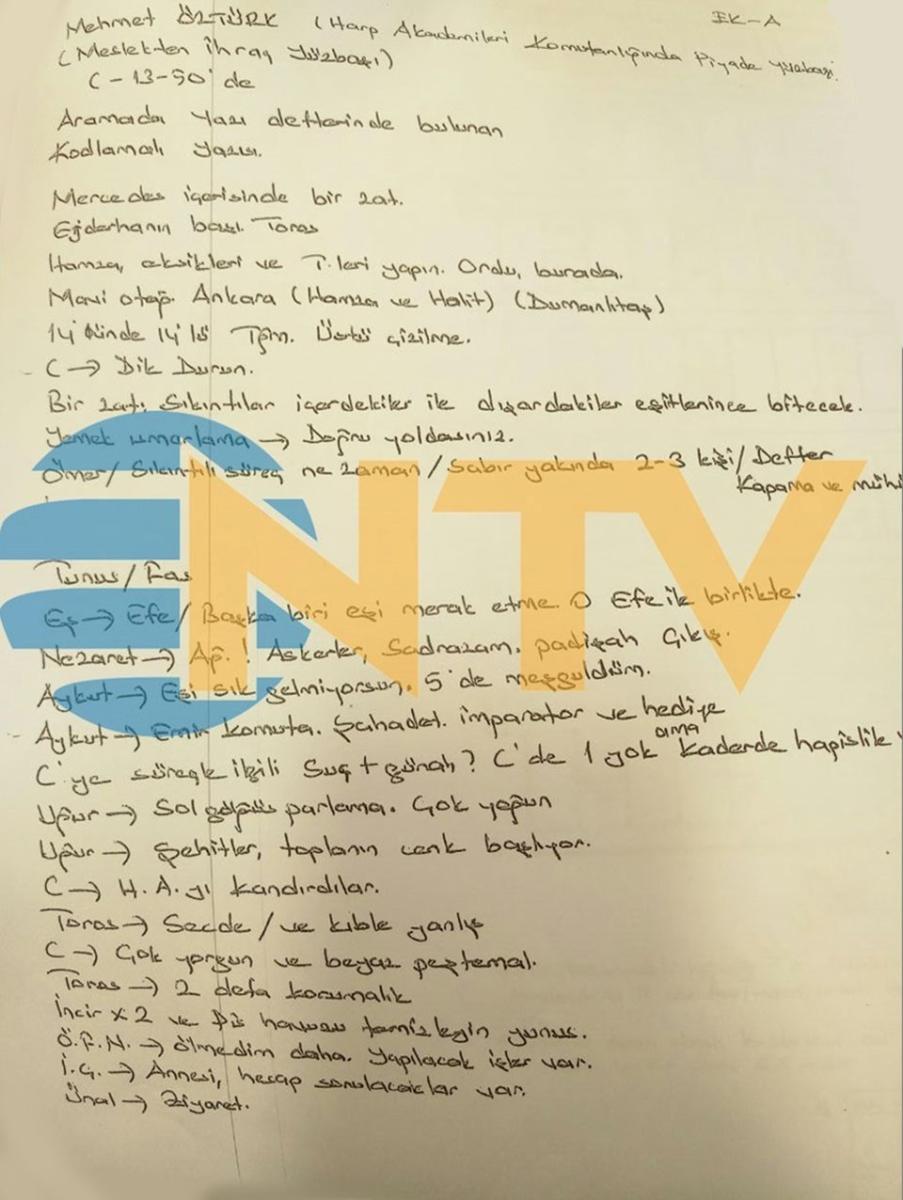 EK-A
Mehmet ÖZTÜRK (Harp Akademileri Komutanlığında Piyade Yüzbaşı.
(Meslekten İhraç Yüzbaşı)
C-13-50'de
Aramada Yazı defterinde bulunan
Kodlamalı Yazısı.
Mercedes içerisinde bir zat.
Ejderhanın başı. Toros
Hamza, eksikleri ve T.leri yapın. Ordu, burada.
Mavi otağ. Ankara (Hamza ve Halit) (Dumanlıtaş)
14'ünde 14'lü Tğm. Üstü çizilme.
C → Dik Durun.
Bir zat: Sıkıntılar içerdekiler ile dışardakiler eşitlenince bitecek.
Yemek ısmarlama → Doğru yoldasınız.
Ömer/ Sıkıntılı süreç ne zaman/Sabır yakında 2-3 kişi/Defter
Kapama ve mühü
Tunus/Fas
Eş → Efe/ Başka biri eşi merak etme. O Efe ile birlikte.
Nezaret → Ap.! Askerler, Sadrazam, padişah Çıkış.
Aykut → Eşi sık gelmiyorsun. 5'de meşguldüm.
Aykut → Emir komuta. Şahadet. imparator ve hediye
C'ye süreçle ilgili Suç + günah? C'de 1 yok ama kaderde hapislik v
Uğur → Sol göğüs parlama. Çok yoğun
Uğur → Şehitler, toplanın cenk başlıyor.
C → H.A.yı kandırdılar.
Toros → Secde/ve kıble yanlış
C → Çok yorgun ve beyaz peştemal.
Toros → 2 defa korumalık
İncir x2 ve pis havuzu temizleyin yunus.
Ö.F.N. → ölmedim daha. Yapılacak işler var.
İ.G. → Annesi, hesap sorulacaklar var.
Ünal → Ziyaret.
NTV